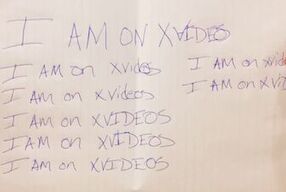 I AM ON XVIDEOS
I AM on Xvideos
I Am on XVideos
I Am on XVIDEOS
I AM on XVIDEOS
I Am on XVIDEOS
I am on Xvide
I Am on XVI